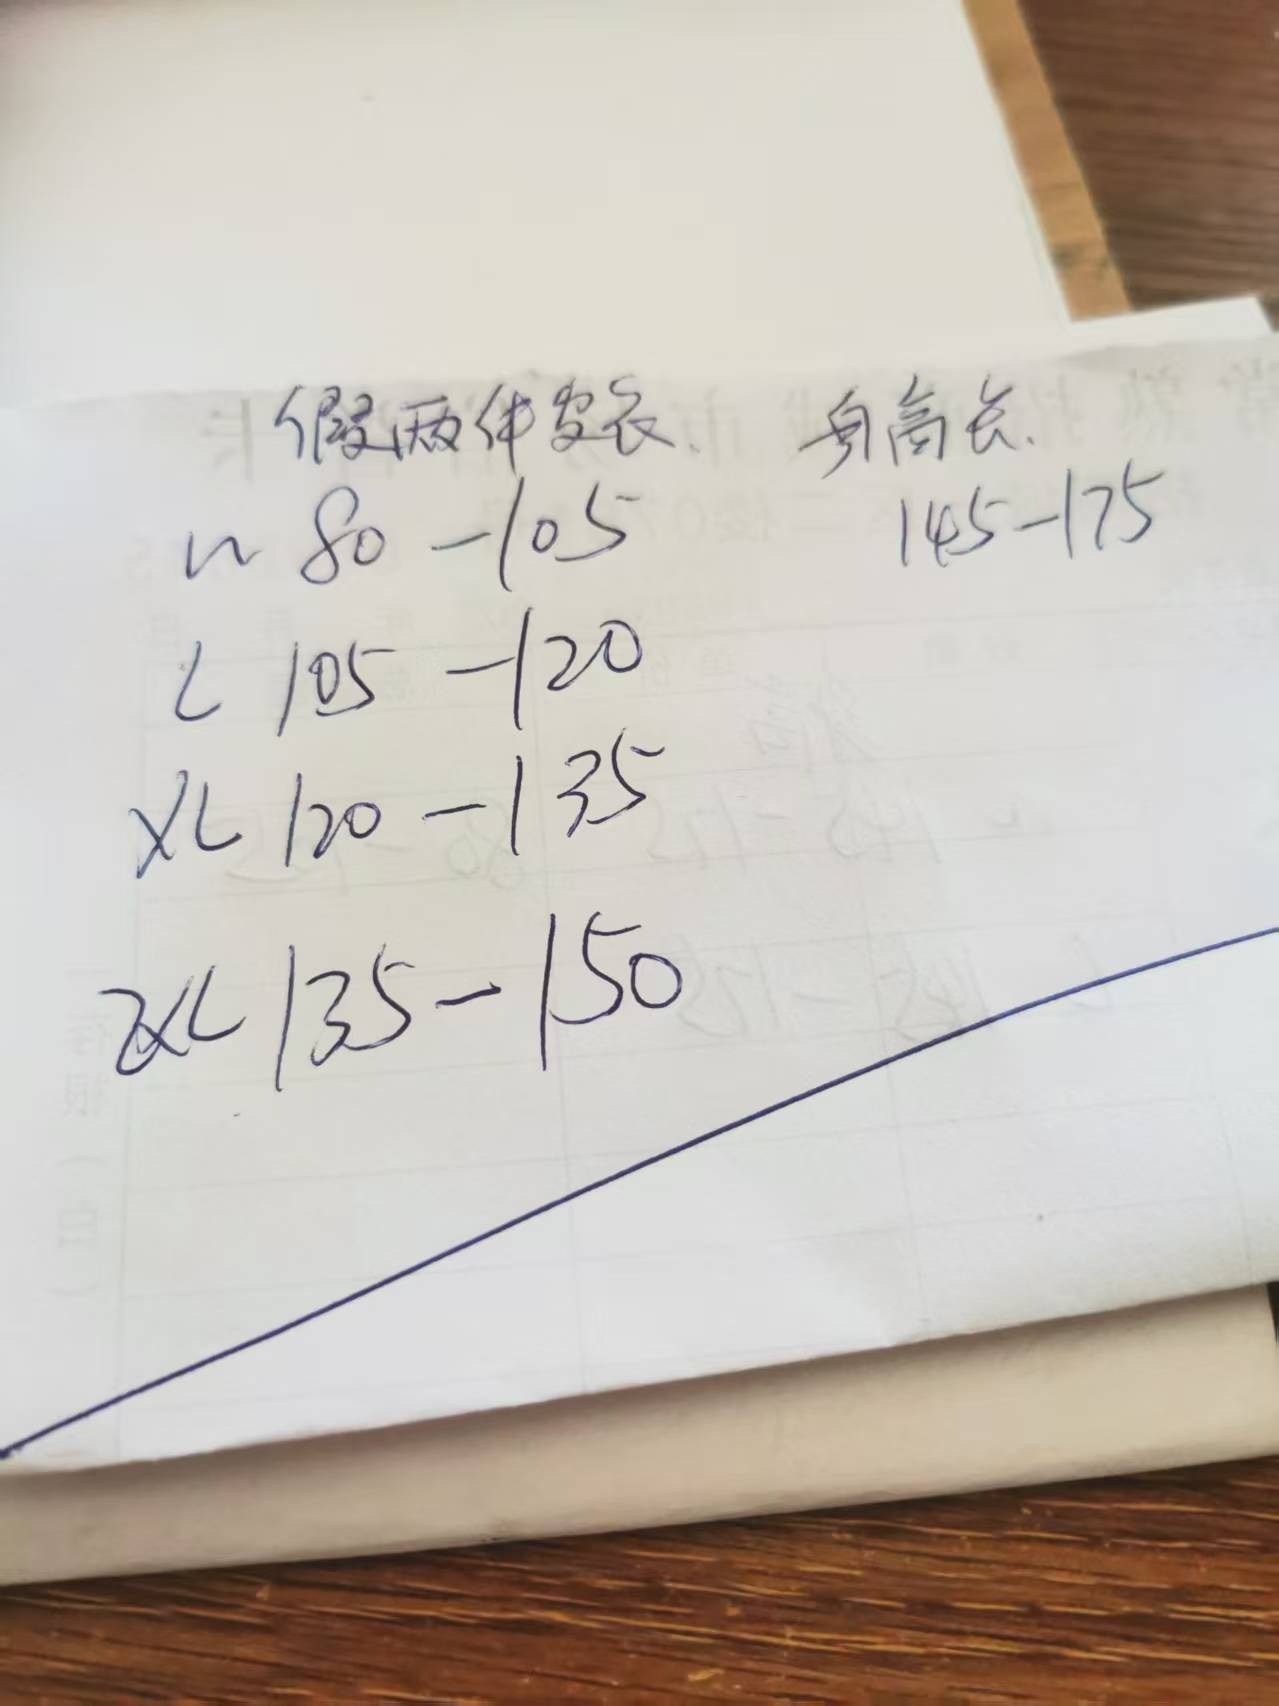 假两件安衣. 身高长.
M 80-105 145-175
L 105-120
XL 120-135
2XL 135-150